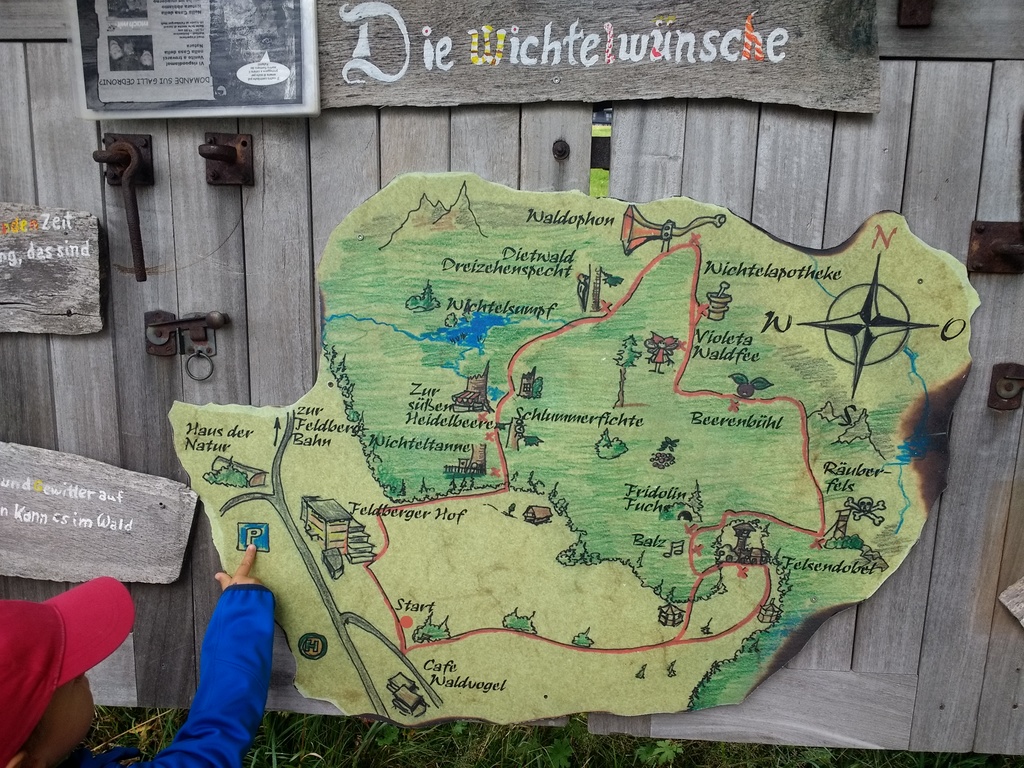 DOMANDE SUI GALLI CEDRONI?
Die Wichtelwünsche
Zeit
ng, das sind
und Gewitter auf
n Kann es im Wald
Waldophon
N
Dietwald
Dreizehenspecht
Wichtelapotheke
Wichtelsumpf
W
O
Violeta
Waldfee
Zur
süßen
Heidelbeere
Schlummerfichte
Beerenbühl
S
Haus der
Natur
zur
Feldberg
Bahn
Wichteltanne
Räuber-
fels
Fridolin
Fuchs
Feldberger Hof
P
Balz
Felsendobel
Start
H
Cafe
Waldvogel